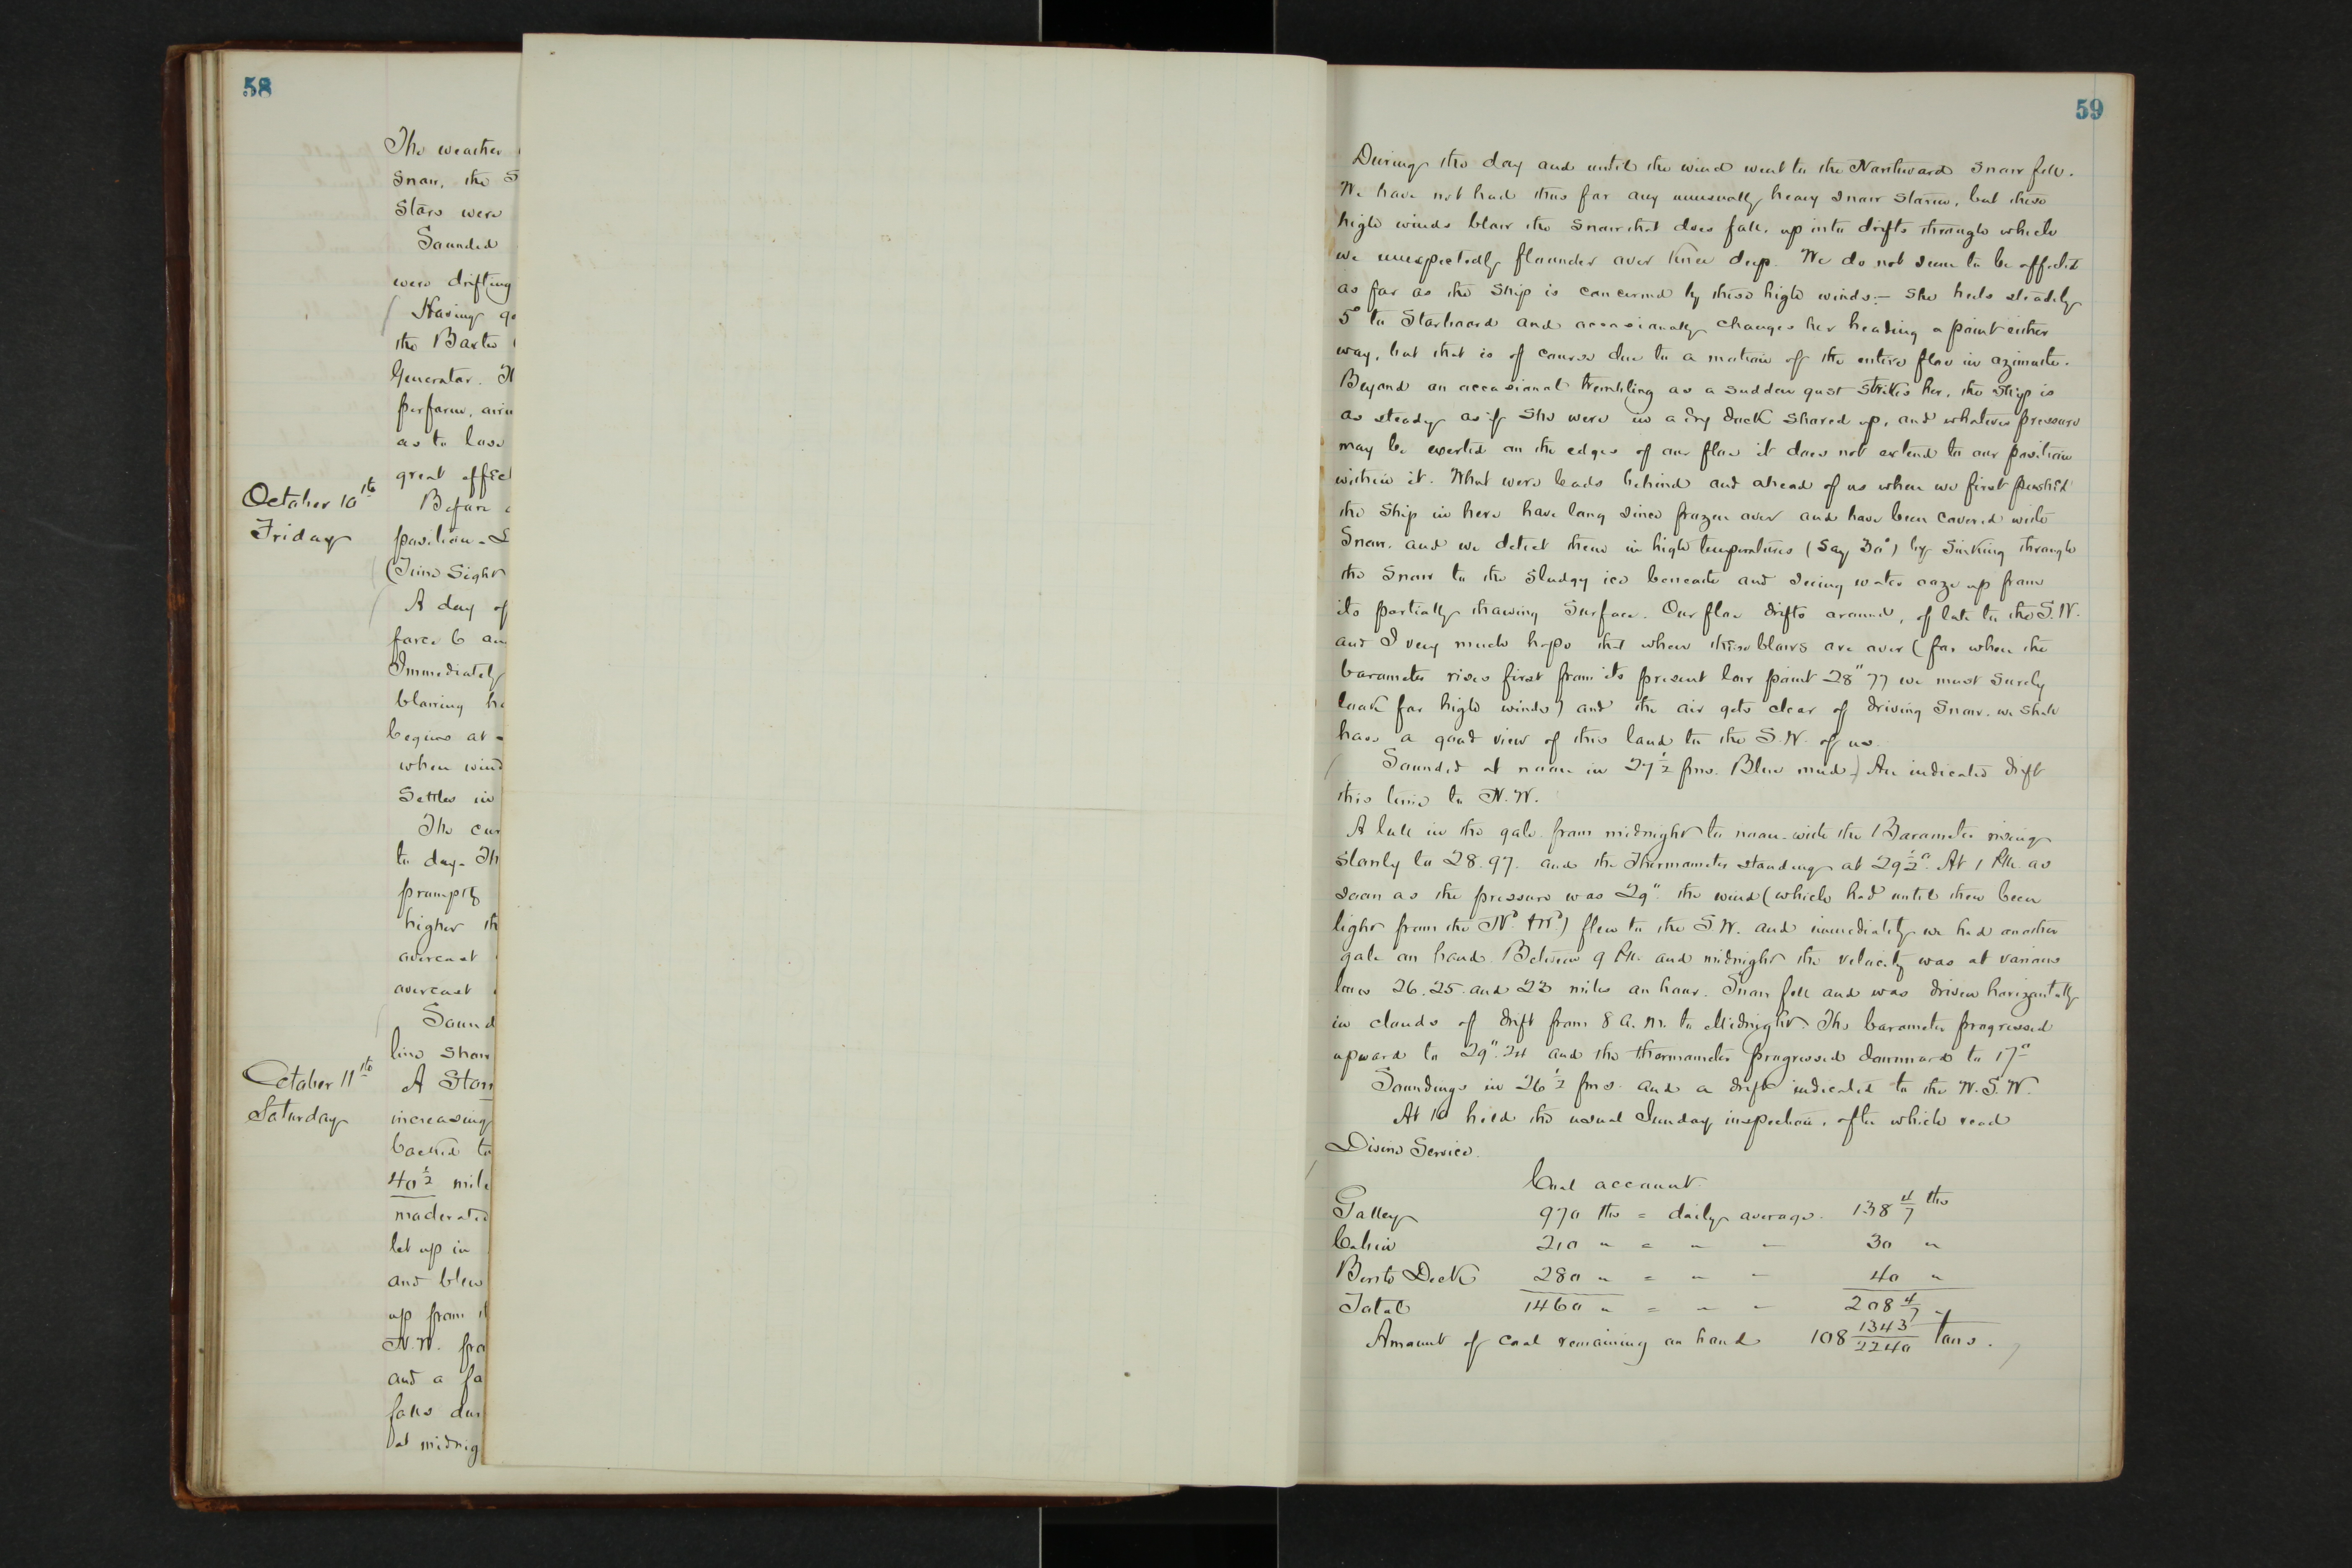 58
The weather
Snow, the S
Stars were
Sounded
were drifting
Having
the Baxter
Generator.
perform,
as to lose
great effec
October 10th
Friday
Before
position
(Time Sight
A day of
force 6
Immediately
blowing
begins at
when wind
Settles in
The cur
to day. Th
promptly
higher th
overcast
overcast
Sound
line show
October 11th
Saturday
A Stor
increasing
backed to
40 1/2 mile
moderated
let up in
and blew
up from
N.W. fro
and a fa
falls dur
at midnig
59
During the day and until the wind went to the Northward snow fell.
We have not had thus far any unusually heavy snow storm, but these
high winds blow the snow that does fall, up into drifts through which
we unexpectedly flounder over knee deep. We do not seem to be affected
as far as the Ship is concerned by these high winds:- She heels steadily
5° to Starboard and occasionally changes her heading a point either
way, but that is of course due to a motion of the entire floe in azimuth.
Beyond an occasional trembling as a sudden gust strikes her, the Ship is
as steady as if She were in a dry dock shored up, and whatever pressure
may be exerted on the edges of our floe it does not extend to our position
within it. What were leads behind and ahead of us when we first pushed
the Ship in here have long since frozen over and have been covered with
Snow. and we detect them in high temperatures (Say 30°) by Sinking through
the Snow to the Sludgy ice beneath and seeing water ooze up from
its partially thawing Surface. Our floe drifts around, of late to the S.W.
and I very much hope that when these blows are over (for when the
barometer rises first from its present low point 28" 77 we must Surely
look for high winds) and the air gets clear of driving Snow. we shall
have a good view of this land to the S.W. of us.
Sounded at noon in 27 1/2 fms. Blue mud.) An indicated drift
this time to N.W.
A lull in the gale from midnight to noon with the Barometer rising
slowly to 28.97. and the Thermometer standing at 29 1/2°. At 1 P.M. as
soon as the pressure was 29". the wind (which had until then been
light from the Nd. & Wd.) flew to the S.W. and immediately we had another
gale on hand. Between 9 P.M. and midnight the velocity was at various
times 26. 25. and 23 miles an hour. Snow fell and was driven horizontally
in clouds of drift from 8 A.M. to Midnight. The barometer progressed
upward to 29". 24 and the thermometer progressed downward to 17°
Soundings in 26 1/2 fms. and a drift indicated to the W.S.W.
At 10 held the usual Sunday inspection, after which read
Divine Service.
Coal account.
Galley 970 lbs = daily average. 138 4/7 lbs
Cabin 210 " = " " 30 "
Berth Deck 280 " = " " 40 "
Total 1460 " = " " 208 4/7 "
Amount of coal remaining on hand 108 1343/2240 tons.